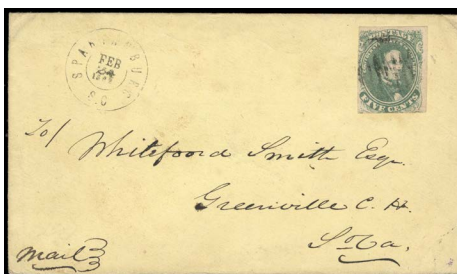 SPARTANBURG
S.C
FEB
24
FIVE CENTS
To/
Whitefoord Smith Esqr.
Greenville C. H.
So Ca,
Mail